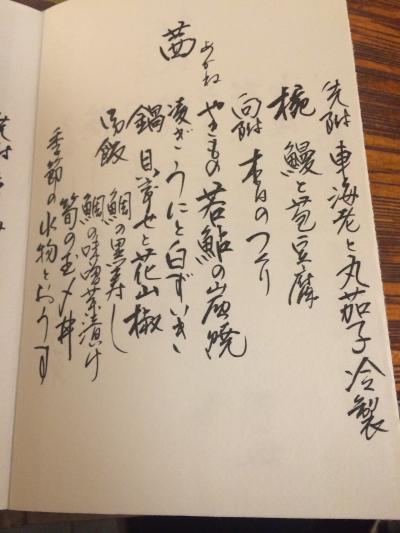 茜 あかね
先附 車海老と丸茄子冷製
椀 鰻と苞豆腐
向附 本日のつくり
やきもの 若鮎の炭焼
凌ぎ うにと白ずいき
鍋 貝寄せと花山椒
御飯 鯛の黒寿し
鯛の味噌茶漬け
筍の玉〆丼
季節の水物とおうす